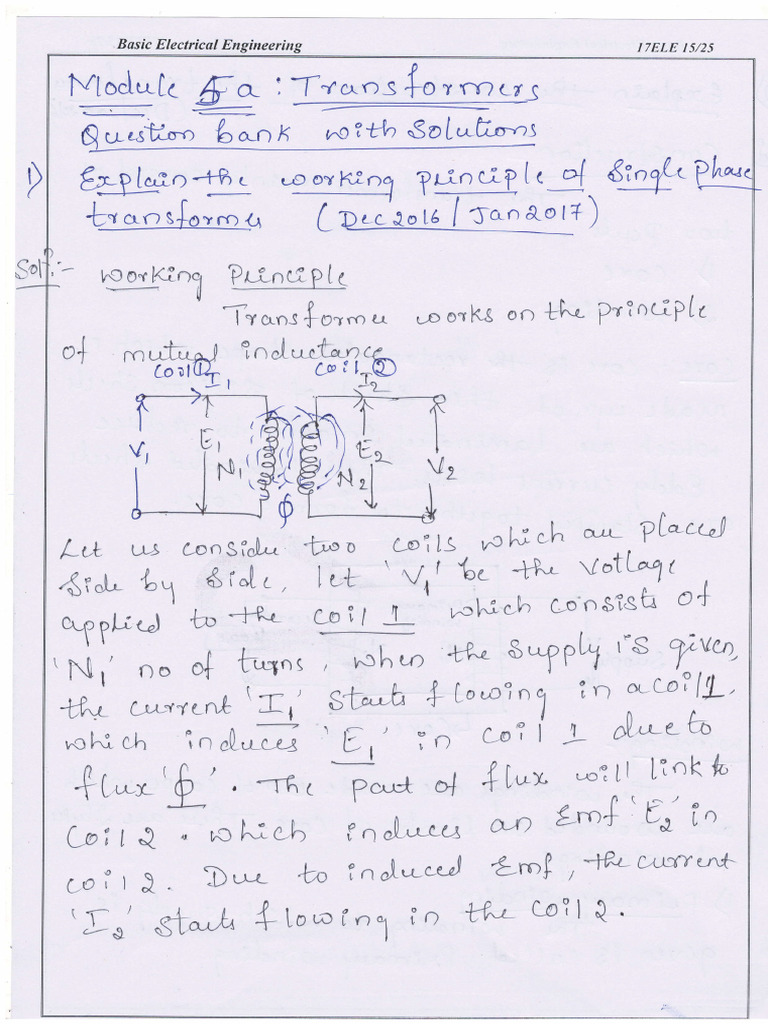 Basic Electrical Engineering 17ELE 15/25
Module 5a : Transformers
Question bank with Solutions
1) Explain the working principle of Single Phase
transformer (Dec 2016 / Jan 2017)
Solⁿ:- Working Principle
Transformer works on the principle
of mutual inductance
Coil 1 I₁ Coil 2 I₂
V₁ E₁ N₁ ϕ N₂ E₂ V₂
Let us consider two coils which are placed
Side by Side, let 'V₁' be the Votlage
applied to the coil 1 which consists of
'N₁' no of turns, when the supply is given,
the current 'I₁' starts flowing in a coil 1.
which induces 'E₁' in coil 1 due to
flux 'ϕ'. The part of flux will link to
Coil 2. which induces an Emf 'E₂' in
coil 2. Due to induced Emf, the current
'I₂' starts flowing in the coil 2.